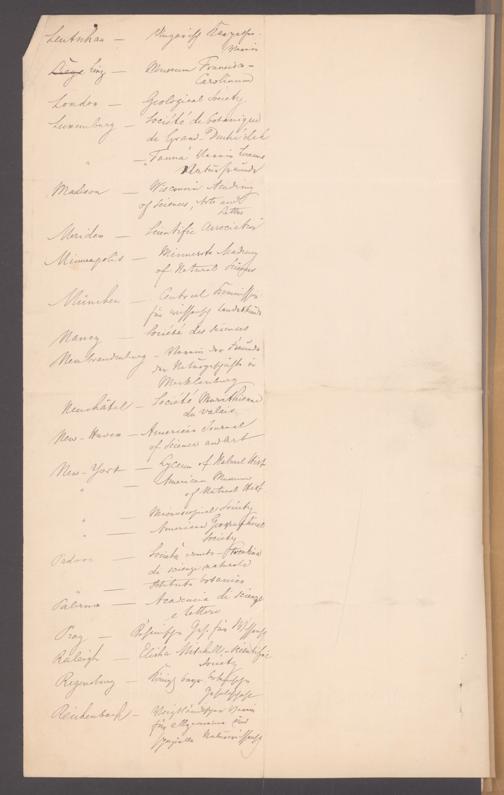 Leutschau — Ungarisch Karpathen-
Verein
Liège Linz — Museum Francisco-
Carolinum
London — Geological Society
Luxemburg — Société de botanique
de Grand-Duché de L
" — "Fauna" Verein Luxemb
Naturfreunde
Madison — Wisconsin Academy
of Sciences, Arts and
Letters
Meriden — Scientific Association
Minneapolis — Minnesota Academy
of Natural Sciences
München — Central Kommission
für wissensch Landeskunde
Nancy — Société des sciences
Neubrandenburg — Verein der Freunde
der Naturgeschichte in
Mecklenburg
Neuchâtel — Société Murithienne
du valais
New-Haven — American Journal
of Science and Art
New-York — Lyceum of Natural Hist
" — American Museum
of Natural Hist
" — Microscopical Society
" — American Geographical
Society
Padova — Società Trentina
di scienze naturali
— Istituto botanico
Palermo — Academia di Scienze
e lettere
Prag — Böhmische Ges. für Wissensch
Raleigh — Elisha Mitchell Scientific
Society
Regensburg — Königl bayr botanische
Gesellschaft
Reichenbach — Voigtländischer Verein
für allgemeine und
spezielle Naturwissensch